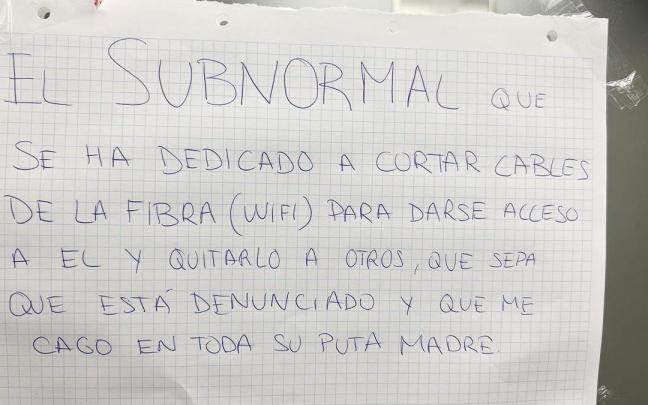 EL SUBNORMAL QUE
SE HA DEDICADO A CORTAR CABLES
DE LA FIBRA (WIFI) PARA DARSE ACCESO
A EL Y QUITARLO A OTROS, QUE SEPA
QUE ESTÁ DENUNCIADO Y QUE ME
CAGO EN TODA SU PUTA MADRE.